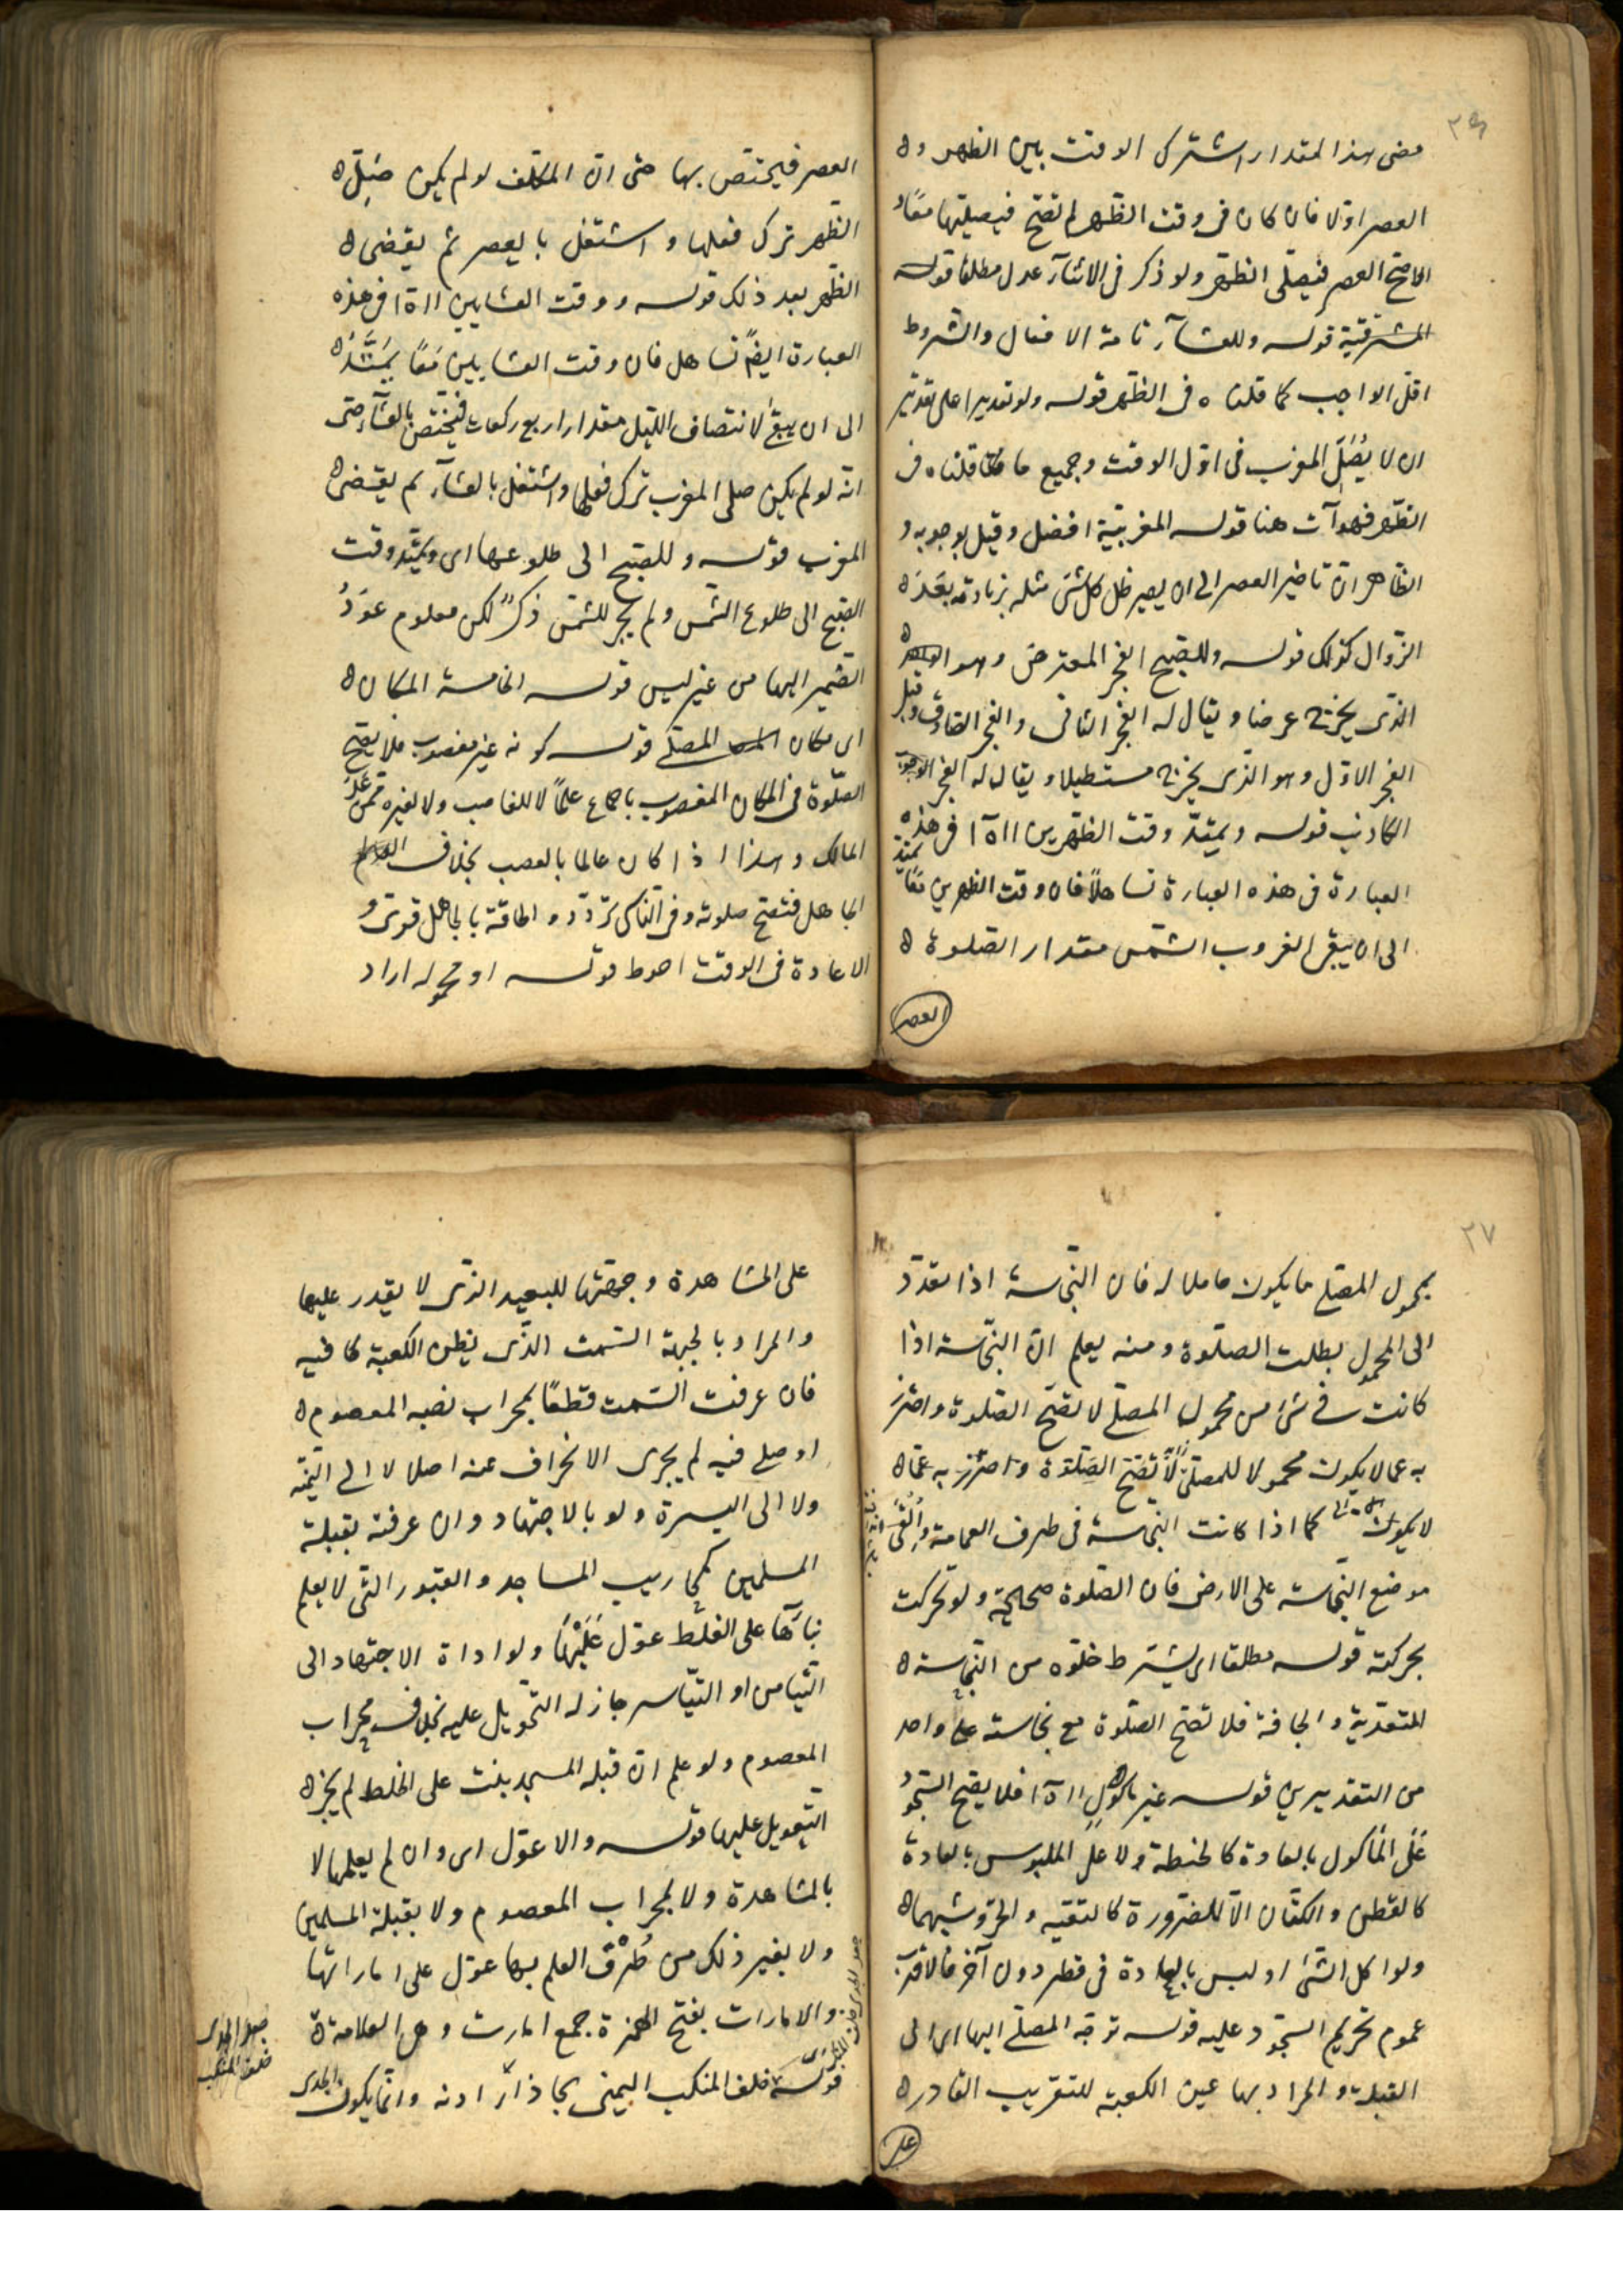 ٢٦
مضى هذا المقدار اشترك الوقت بين الظهر و
العصر اولا فان كان فى وقت الظهر لم تصح فيصليهما معًا و
الا صح العصر فيصلى الظهر ولو ذكر فى الاثناء عدل مطلقا قوله
المشرقية قوله وللعشآء تامة الافعال والشروط
اقل الواجب كما قلناه فى الظهر قوله ولو تقديرا على تقدير
ان لا يُصَلّ المغرب فى اوّل الوقت وجميع ما قلناه فى
الظهر فهو آت هنا قوله المغربيّة افضل وقيل بوجوبه و
الظاهر انّ تاخير العصر الى ان يصير ظل كل شئ مثله بزيادته بعَدَ
الزوال كذلك قوله وللصبح الفجر المعترض وهو
الذى يخرج عرضا ويقال له الفجر الثانى والفجر الصادق وقبل
الفجر الاوّل وهو الذى يخرج مستطيلا ويقال له الفجر
الكاذب قوله ويمتدّ وقت الظهرين ااه ا فى هذه
العبارة فى هذه العبارة تساهلاً فان وقت الظهرين معًا يمتد
الى ان يبقى لغروب الشمس مقدار الصلوة
العصر
العصر فيختص بها حتى انّ المكلّف لو لم يكن صَلّى
الظهر ترك فعلها واشتغل بالعصر ثم يقضى
الظهر بعد ذلك قوله ووقت العشايين ااه ا فى هذه
العبارة ايضًا تساهل فان وقت العشايين معًا يَمتَدُّ
الى ان يبقى لانتصاف الليل مقدار اربع ركعات فيختص بالعشآء حتى
انّه لو لم يكن صلى المغرب ترك فعلها واشتغل بالعشآء ثم يقضى
المغرب قوله وللصبح الى طلوعها اى ويمتدّ وقت
الصبح الى طلوع الشمس ولم يجر للشمس ذكرٌ لكن معلوم عوَدُ
الضمير اليها من غير لبس قوله الخامسة المكان
اى مكان المصلّى قوله كونه غير مغصوب فلا تصح
الصلوة فى المكان المغصوب باجماع علمآئنا لا للغاصب ولا لغيره ممّن علم
المالك وهذا اذا كان عالما بالغصب بخلاف
الجاهل فتصح صلوته وفى الناسى تردّد والحاقه بالجاهل قوىّ و
الاعادة فى الوقت احوط قوله او محموله اراد
٢٧
بمحمول المصلّى ما يكون حاملا له فان النجاسة اذا تعدّت
الى المحمول بطلت الصلوة ومنه يعلم انّ النجاسة اذا
كانت فى شئ من محمول المصلّى لا تصح الصلوة واحترز
به عما لا يكون محمولا للمصلى لا تصح الصلوة واحترز به عمّا
لا يكون كما اذا كانت النجاسة فى طرف العمامة واُلقى
موضع النجاسة على الارض فان الصلوة صحيحة ولو تحركت
بحركته قوله مطلقا اى يشترط خلوّه من النجاسة
المتعدية والجافة فلا تصح الصلوة مع نجاسة على واحد
من التقديرين قوله غير ماكولٍ ااه ا فلا يصح السجود
عَلَى المأكول بالعادة كالحنطة ولا على الملبوس بالعادة
كالقطن والكتان الاّ للضرورة كالتقيه والحرّ وشبههما
ولو اكل الشئ او لبس بالعادة فى قطر دون آخر فالاقرب
عموم تحريم السجود عليه قوله توجّه المصلّى اليها اى الى
القبلة والمراد بها عين الكعبة للقريب القادر
على
على المشاهدة وجهتها للبعيد الذى لا يقدر عليها
والمراد بالجهة السمت الذى يظن الكعبة كافيه
فان عرفت السمت قطعًا بمحراب نصبه المعصوم
او صلى فيه لم يجزى الانحراف عنه اصلا لا الى اليمنة
ولا الى اليسرة ولو بالاجتهاد وان عرفته بقبلة
المسلمين كمحاريب المساجد والقبور التى لا يعلم
بناؤها على الغلط عوّل عَلَيْهَا ولو اداه الاجتهاد الى
التيامن او التياسر جاز له التحويل عليه بخلاف محراب
المعصوم ولو علم انّ قبلة المسجد بنيت على الخلط لم يجز
التعويل عليها قوله والا عوّل اى وان لم يعلمها لا
بالمشاهدة ولا لمحراب المعصوم ولا بقبلة المسلمين
ولا بغير ذلك من طُرُق العلم بها عوّل على اماراتها
والامارات بفتح الهمزة جمع امارت وهى العلامة
قوله خلف المنكب اليمنى بحاذآء اذنه وانما يكون الجدى
جعل الجدى
خلف المنكب